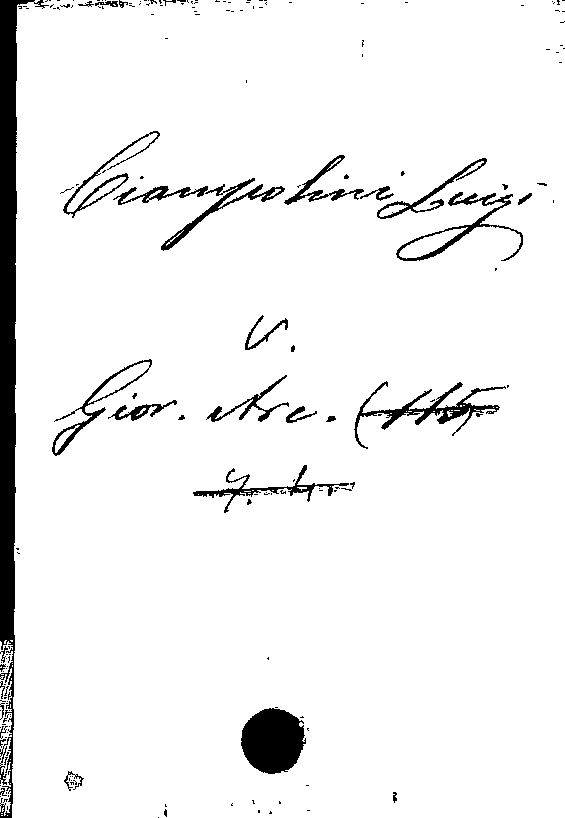 Ciampolini Luigi
V.
Gior. Arc. (115)